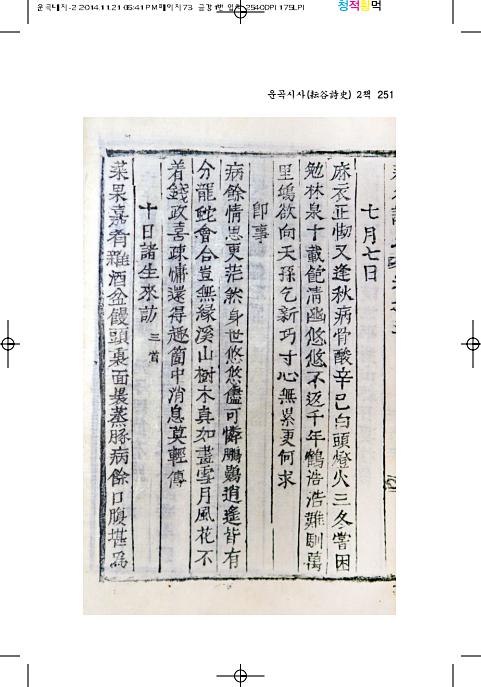 운곡대지-2 2014.11.21 05:41 PM 페이지73
2540DPI 175LPI
청적황먹
운곡시사(耘谷詩史) 2책 251
七月七日
麻衣正惻又逢秋病骨酸辛已白頭燈火三冬嘗困
勉林泉十載飽淸幽悠悠不返千年鶴浩浩難馴萬
里鷗欲向天孫乞新巧寸心無累更何求
卽事
病餘情思更茫然身世悠悠儘可憐鵬鷃逍遙皆有
分龍蛇會合豈無緣溪山樹木眞如畫雪月風花不
着錢政喜疎慵還得趣箇中消息莫輕傳
十日諸生來訪 三首
菜果嘉肴雜酒盆饅頭裹面㬥蒸豚病餘口腹甚爲